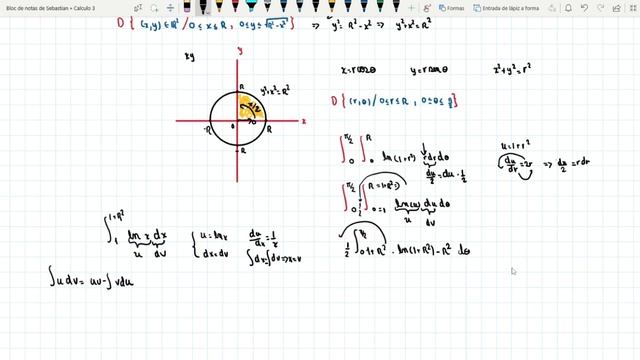 Bloc de notas de Sebastian • Calculo 3
Formas
Entrada de lápiz a forma
D { (x,y) ∈ ℝ² / 0 ≤ x ≤ R , 0 ≤ y ≤ √R²-x² } ⇒ y² = R² - x² ⇒ y²+x² = R²
xy
y
R
y²+x² = R²
π/2
-R
0
0
R
x
-R
x = r cosθ y = r senθ x²+y² = r²
D { (r,θ) / 0 ≤ r ≤ R , 0 ≤ θ ≤ π/2 }
∫₀^π/2 ∫₀^R ln(1+r²) r dr dθ
du/2 = du · 1/2
u = 1+r²
du/dr = 2r ⇒ du/2 = r dr
∫₀^π/2 1/2 ∫ ln(u) du dθ
u dv
∫₁^1+R² ln x dx
u dv
{ u = ln x du/dx = 1/x
dx = dv ∫dx = ∫dv ⇒ x = v
1/2 ∫₀^π/2 1+R² · ln(1+R²) - R² dθ
∫ u dv = uv - ∫ v du